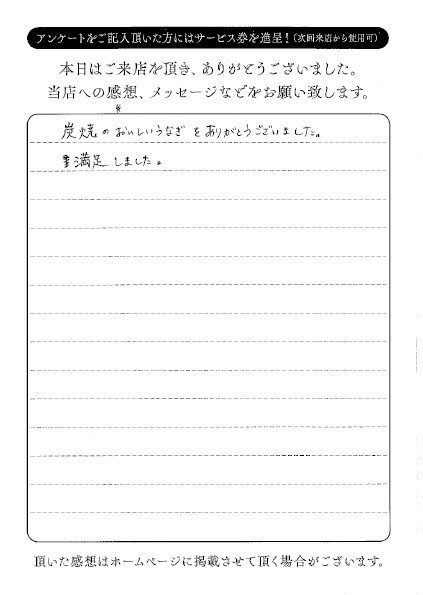 アンケートをご記入頂いた方にはサービス券を進呈！(次回来店から使用可)
本日はご来店を頂き、ありがとうございました。
当店への感想、メッセージなどをお願い致します。
炭焼のおいしいうなぎをありがとうございました。
満足しました。
頂いた感想はホームページに掲載させて頂く場合がございます。